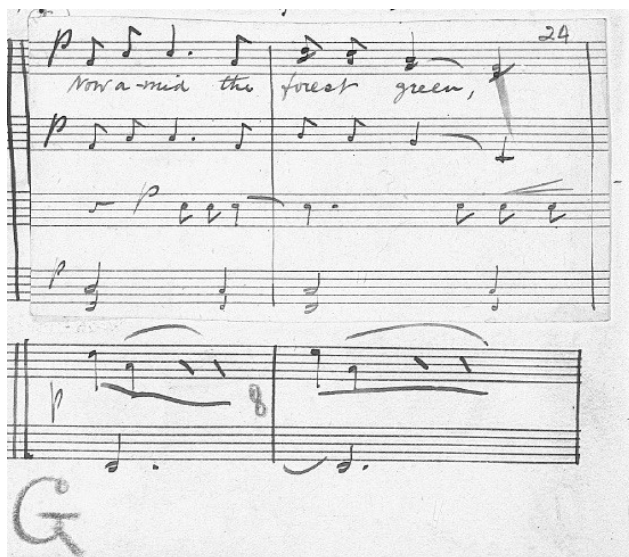 24
p
Now a-mid the forest green,
p
p
p
p
8
G